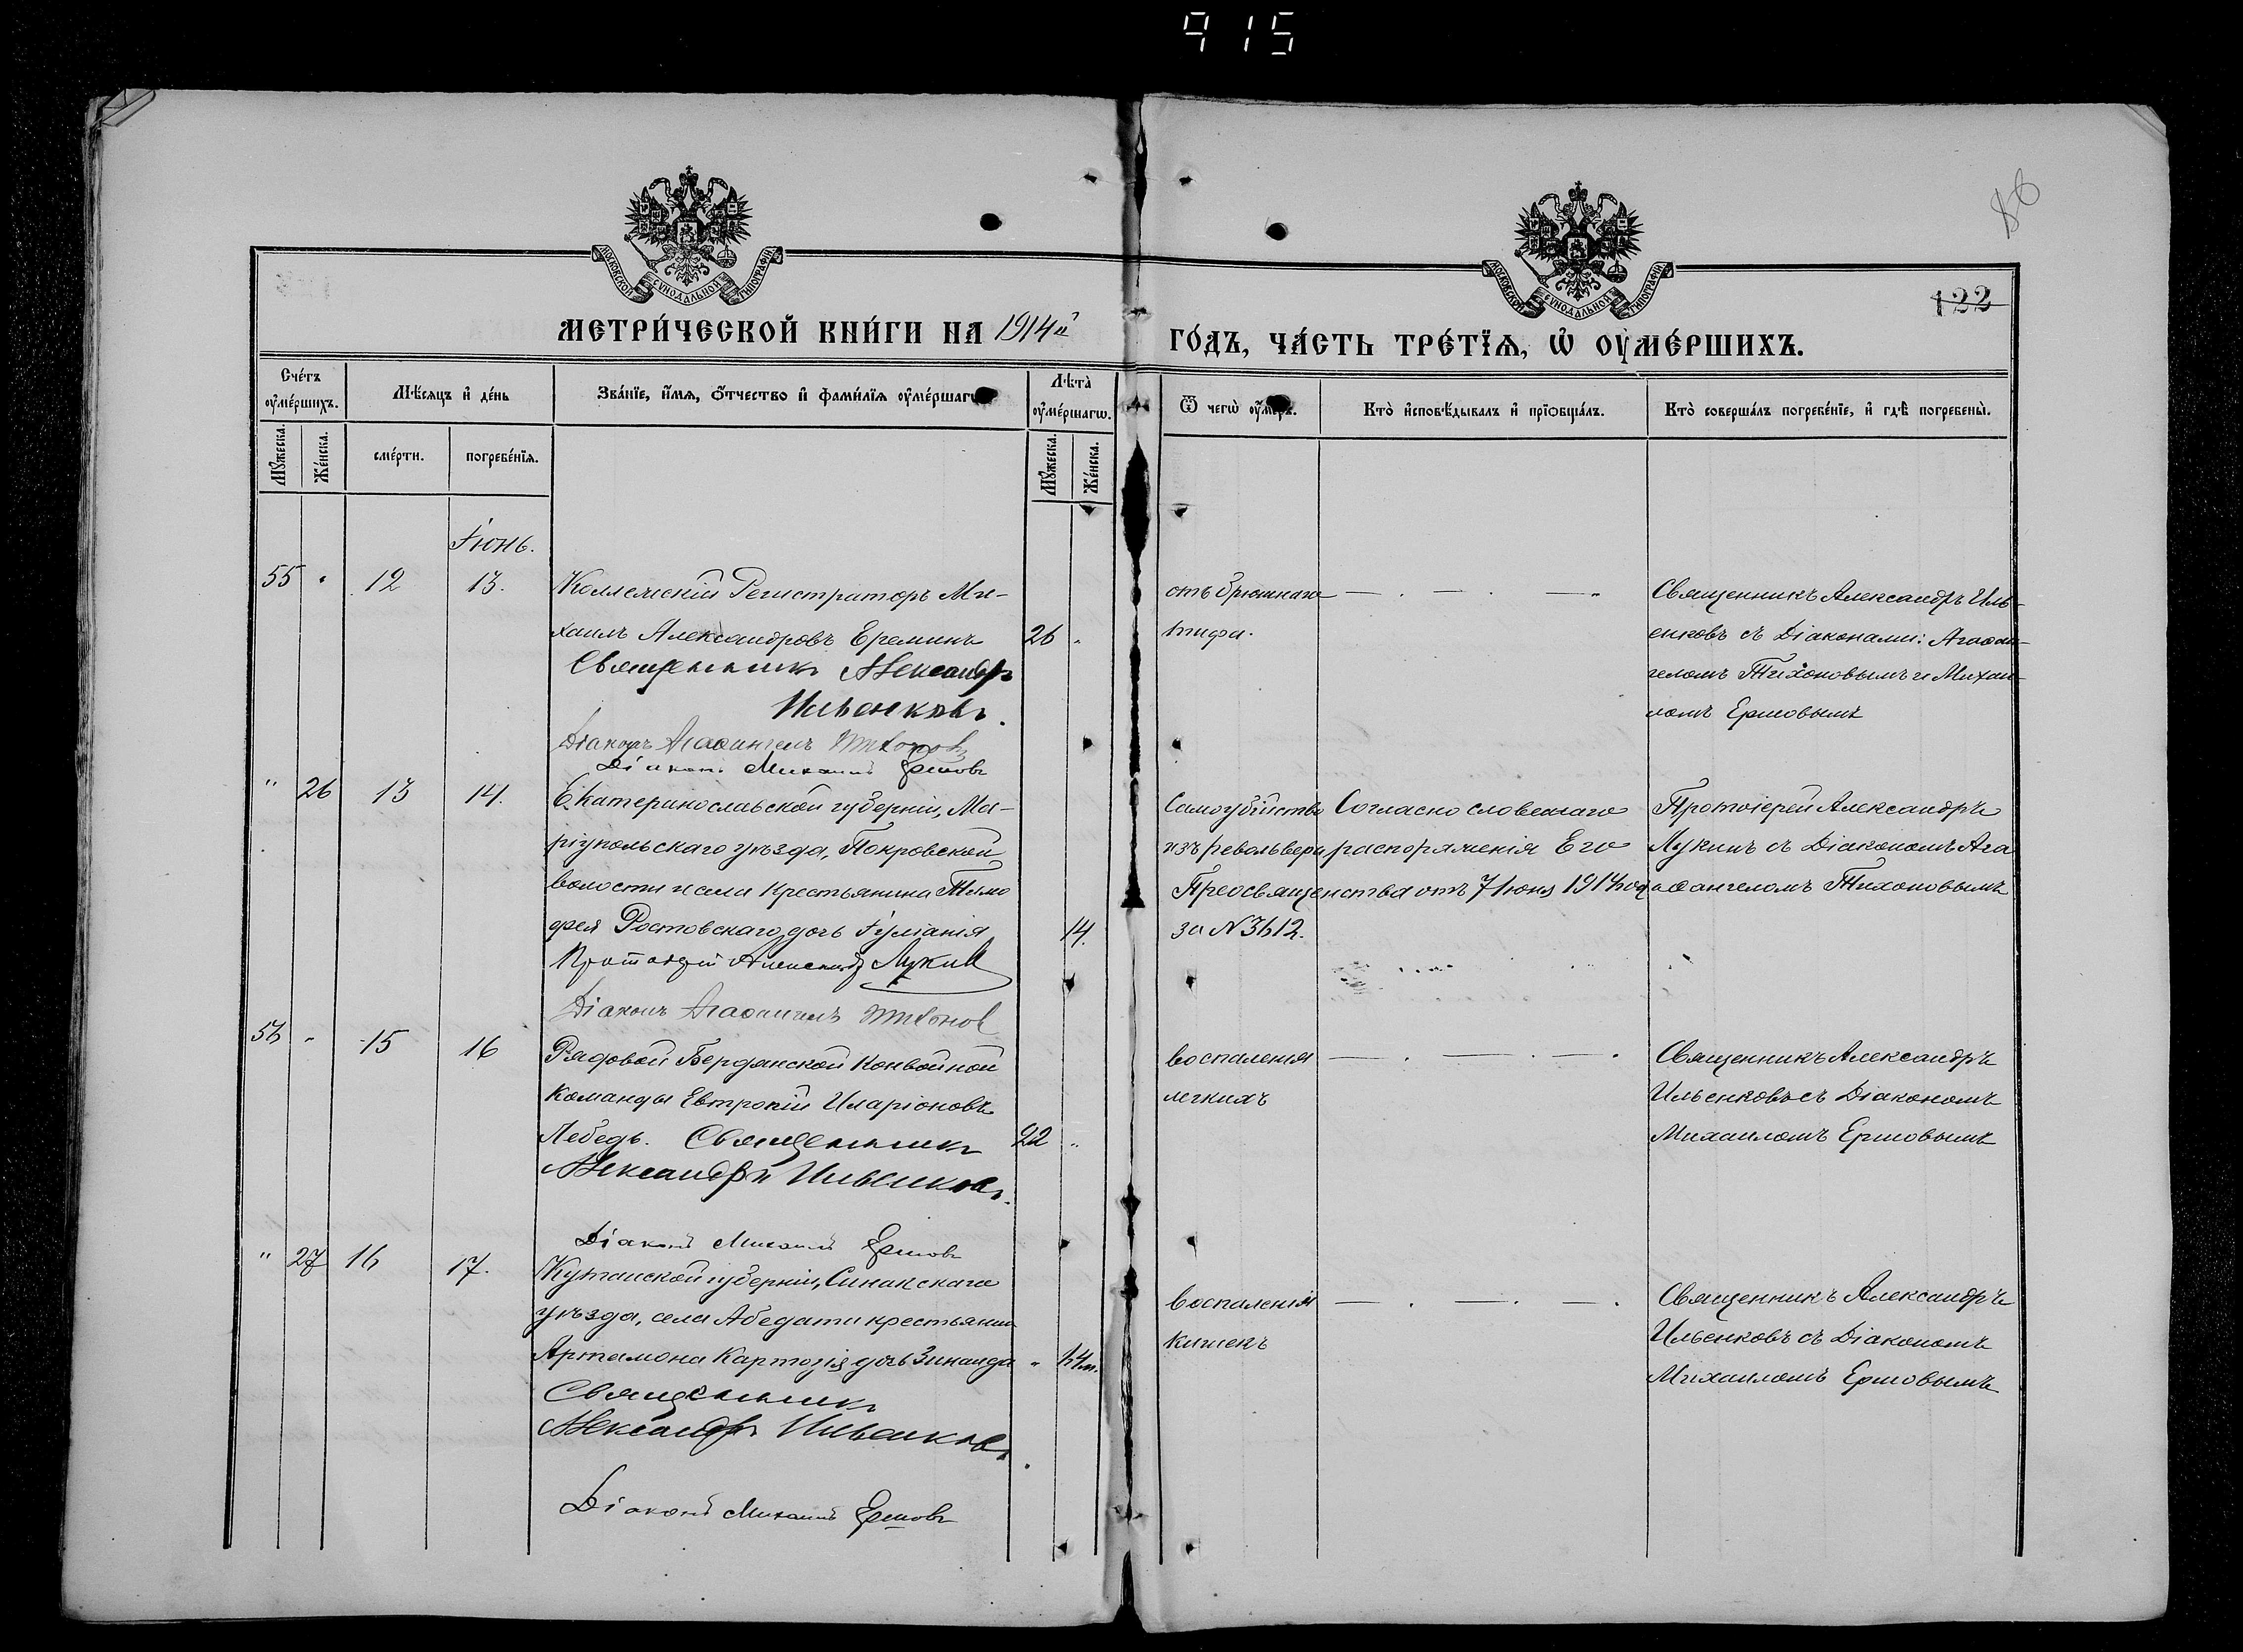 915
86
МОСКОВСКОЙ СѴНОДАЛЬНОЙ ТИПОГРАФІИ
МОСКОВСКОЙ СѴНОДАЛЬНОЙ ТИПОГРАФІИ
122
МЕТРИ́ЧЕСКОЙ КНИ́ГИ НА 1914й
ГО́ДЪ, ЧА́СТЬ ТРЕ́ТЇѦ, Ѡ҆ ОУ҆МЕ́РШИХЪ.
Сче́тъ оу҆ме́ршихъ.
Мѣ́сяцъ и҆ де́нь
Зва́нїе, и҆́мѧ, ѻ҆́тчество и҆ фами́лїѧ оу҆ме́ршагѡ
Лѣ́та оу҆ме́ршагѡ.
Ѿ чегѡ̀ оу҆́меръ.
Кто̀ и҆сповѣ́дывалъ и҆ прїѡбща́лъ.
Кто̀ соверша́лъ погребе́нїе, и҆ гдѣ̀ погребены̀.
Мꙋ́жеска.
Же́нска.
сме́рти.
погребе́нїѧ.
Мꙋ́жеска.
Же́нска.
Іюнь.
55 " 12 13.
Коллежскій Регистраторъ Ми-
хаилъ Александровъ Ереминъ 26 "
Священникъ Александръ
Ильенковъ.
Діаконъ Агаѳангелъ Тихоновъ
Діаконъ Михаилъ Ершовъ
отъ брюшнаго
тифа.
Священникъ Александръ Иль-
енковъ съ Діаконами: Агаѳан-
геломъ Тихоновымъ и Михаи-
ломъ Ершовымъ
" 26 13 14.
Екатеринославской губерніи, Ма-
ріупольскаго уѣзда, Покровской
волости и села крестьянина Тимо
фея Ростовскаго дочь Іуліанія 14.
Протоіерей Александръ Лукинъ
Діаконъ Агаѳангелъ Тихонов
Самоубійство Согласно словеснаго
изъ револьвера распоряженія Его
Преосвященства отъ 7 Іюня 1914 года
за N 3612.
Протоіерей Александръ
Лукинъ съ Діакономъ Ага
ѳангеломъ Тихоновымъ
56 " 15 16
Рядовой Бердянской Конвойной
Команды Евтропій Иларіоновъ
Лебедь. Священникъ 22 "
Александръ Ильенковъ.
Діаконъ Михаилъ Ершовъ
воспаленія
легкихъ
Священникъ Александръ
Ильенковъ съ Діакономъ
Михаиломъ Ершовымъ
" 27 16 17.
Кутаиской губерніи, Синакскаго
уѣзда, села Абедати крестьянина
Артамона Картозія дочь Зинаида "
Священникъ
Александръ Ильенковъ
Діаконъ Михаилъ Ершовъ
воспаленія
кишекъ
Священникъ Александръ
Ильенковъ съ Діакономъ
Михаиломъ Ершовымъ